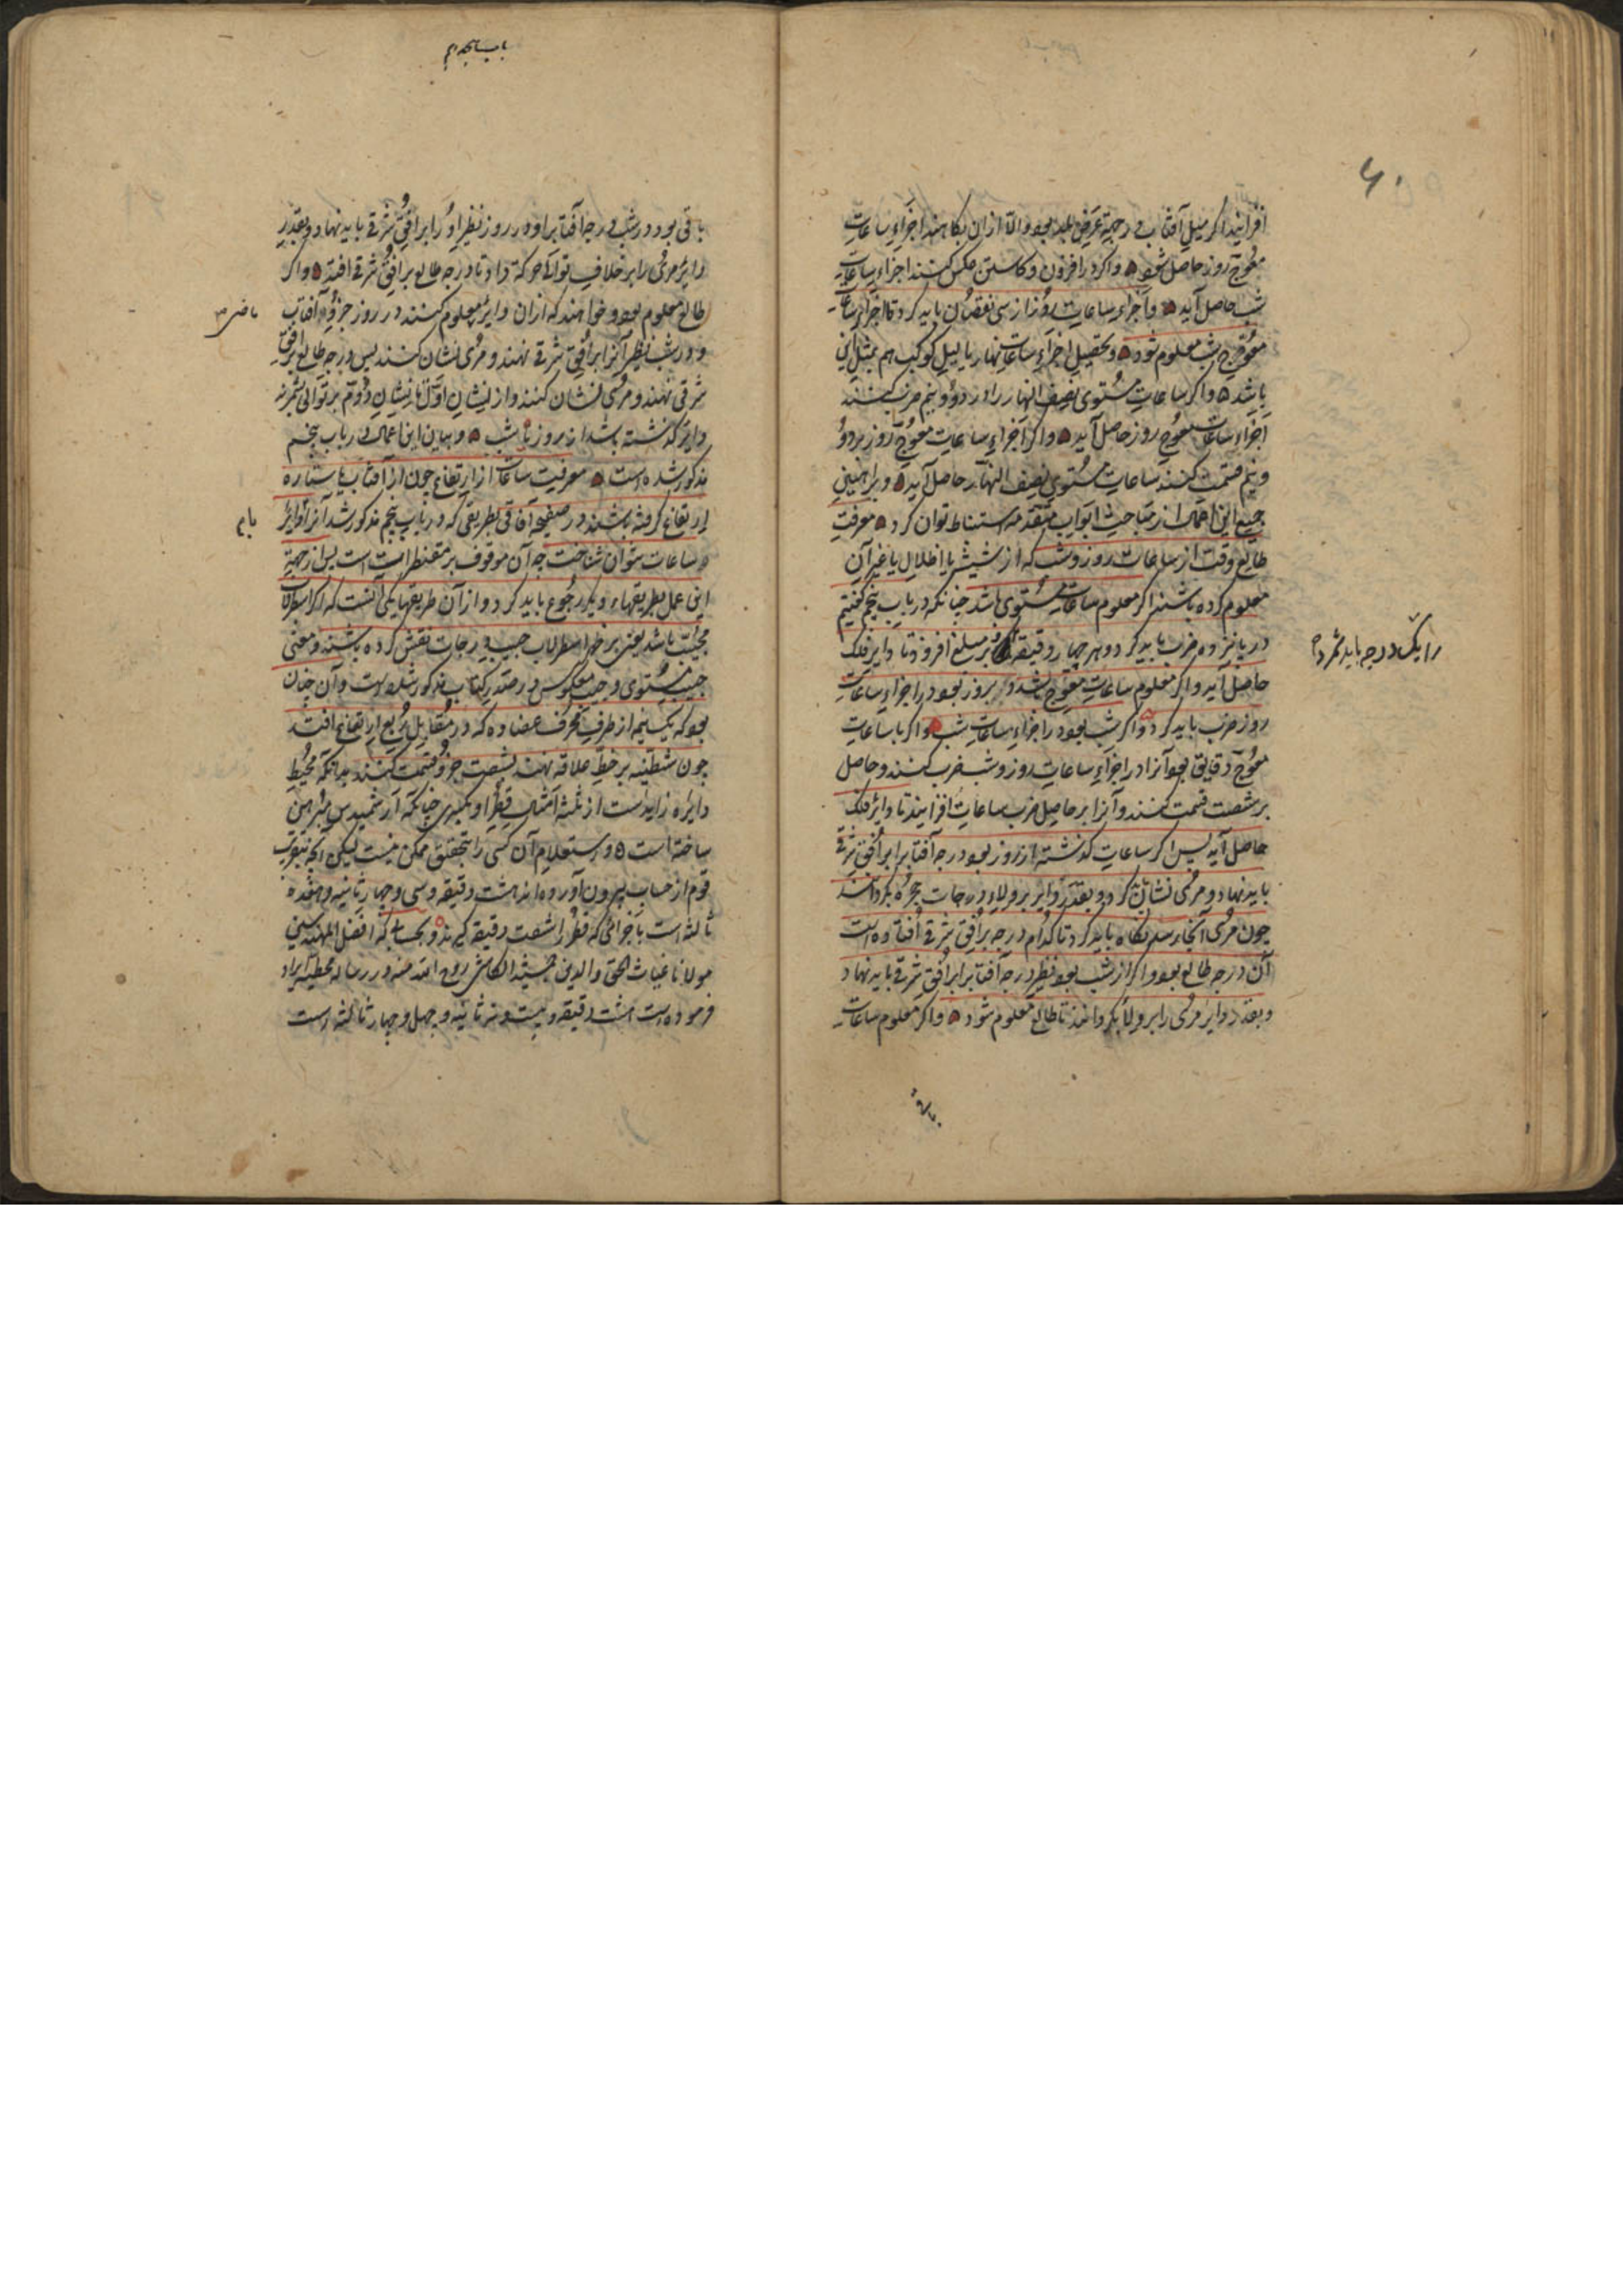 افزایند اگر میل آفتاب در جهة عرض بلد بود والا ازان بکاهند اجزاء ساعات
معوج روز حاصل شود واگر در افزون و کاستن عکس کنند اجزاء ساعات
شب حاصل آید و اجزاء ساعات روز از سی نقصان باید کرد تا اجزاء ساعات
معوج شب معلوم شود و تحصیل اجزاء ساعات نهار یا لیل کوکب هم بمثل این
باشد واگر ساعات مستوی نصف النهار را در دو و نیم ضرب کنند
اجزاء ساعات معوج روز حاصل آید واگر اجزاء ساعات معوج روز بر دو
و نیم قسمت کنند ساعات مستوی نصف النهار حاصل آید و براهین
جمیع این اعمال از مباحث ابواب متقدمه استنباط توان کرد معرفت
طالع وقت از ساعات روز و شب که از شیشه یا اظلال یا غیر آن
معلوم کرده باشند اگر معلوم ساعات مستوی باشد چنانکه در باب پنجم گفتیم
در پانزده ضرب باید کرد و هر چهار دقیقه بر مبلغ افزود تا دایر فلک
حاصل آید و اگر معلوم ساعات معوج باشد بروز بود در اجزاء ساعات
روز ضرب باید کرد و اگر شب بود در اجزاء ساعات شب و اگر با ساعات
معوج دقایق بود آنرا در اجزاء ساعات روز و شب ضرب کنند و حاصل
بر شصت قسمت کنند و آنرا بر حاصل ضرب ساعات افزایند تا دایر فلک
حاصل آید پس اگر ساعات گذشته از روز بود درجه آفتاب را بر افق شرقی
باید نهاد و مری نشان کرد و بقدر دایر بر ولاء درجات حجره بگردانند
چون مری آنجا رسد نگاه باید کرد تا کدام درجه بر افق شرقی افتاده است
آن درجه طالع بود و اگر از شب بود نظیر درجه آفتاب را بر افق شرقی باید نهاد
و بقدر دایر مری را بر ولا بگردانند تا طالع معلوم شود و اگر معلوم ساعات
را یک درجه باید شمرد
باقی
باب پنجم
باقی بود در شب درجه آفتاب را و در روز نظیر او را بر افق شرقی باید نهاد و بقدر
دایر مری را بر خلاف توالی حرکة داد تا درجه طالع بر افق شرقی افتد و اگر
طالع معلوم بود و خواهند که ازان دایر معلوم کنند در روز جزو آفتاب
و در شب نظیر آنرا بر افق شرقی نهند و مری نشان کنند پس درجه طالع بر افق
شرقی نهند و مری نشان کنند و از نشان اول تا نشان دوم بر توالی بشمرند
دایر گذشته باشد از روز یا شب و بیان این اعمال در باب پنجم
مذکور شده است معرفت ساعات از ارتفاع چون از آفتاب یا ستاره
ارتفاع گرفته باشند در صفیحه آفاقی بطریقی که در باب پنجم مذکور شد آنرا دایر
و ساعات نتوان شناخت چه آن موقوف بر مقنطرات است پس از جهة
این عمل بطریقهاء دیگر رجوع باید کرد و از آن طریقها یکی آنست که اگر اسطرلاب
مجیب باشد یعنی بر ظهر اسطرلاب جیب درجات نقش کرده باشند و معنی
جیب مستوی و جیب معکوس در صدر کتاب مذکور شده است و آن چنان
بود که یک نیمه از طرف محرف عضاده که در مقابل ربع ارتفاع افتد
چون شظیه بر خط علاقه نهند بشصت جزو قسمت کنند بدانکه محیط
دایره زایدست از ثلثه امثال قطر او بکسری چنانکه ارشمیدس مبرهن
ساخته است و استعلام آن کسر را تحقیق ممکن نیست لیکن آنچه بتقریب
قوم از حساب بیرون آورده اند هشت دقیقه و سی و چهار ثانیه و هفده
ثالثه است باجزائی که قطر را شصت دقیقه گیرند و بحسابی که افضل المهندسین
مولانا غیاث الحق والدین جمشید الکاشی روح الله رمسه در رساله محیطیه ایراد
فرموده است هشت دقیقه و بیست و نه ثانیه و چهل و چهار ثالثه است